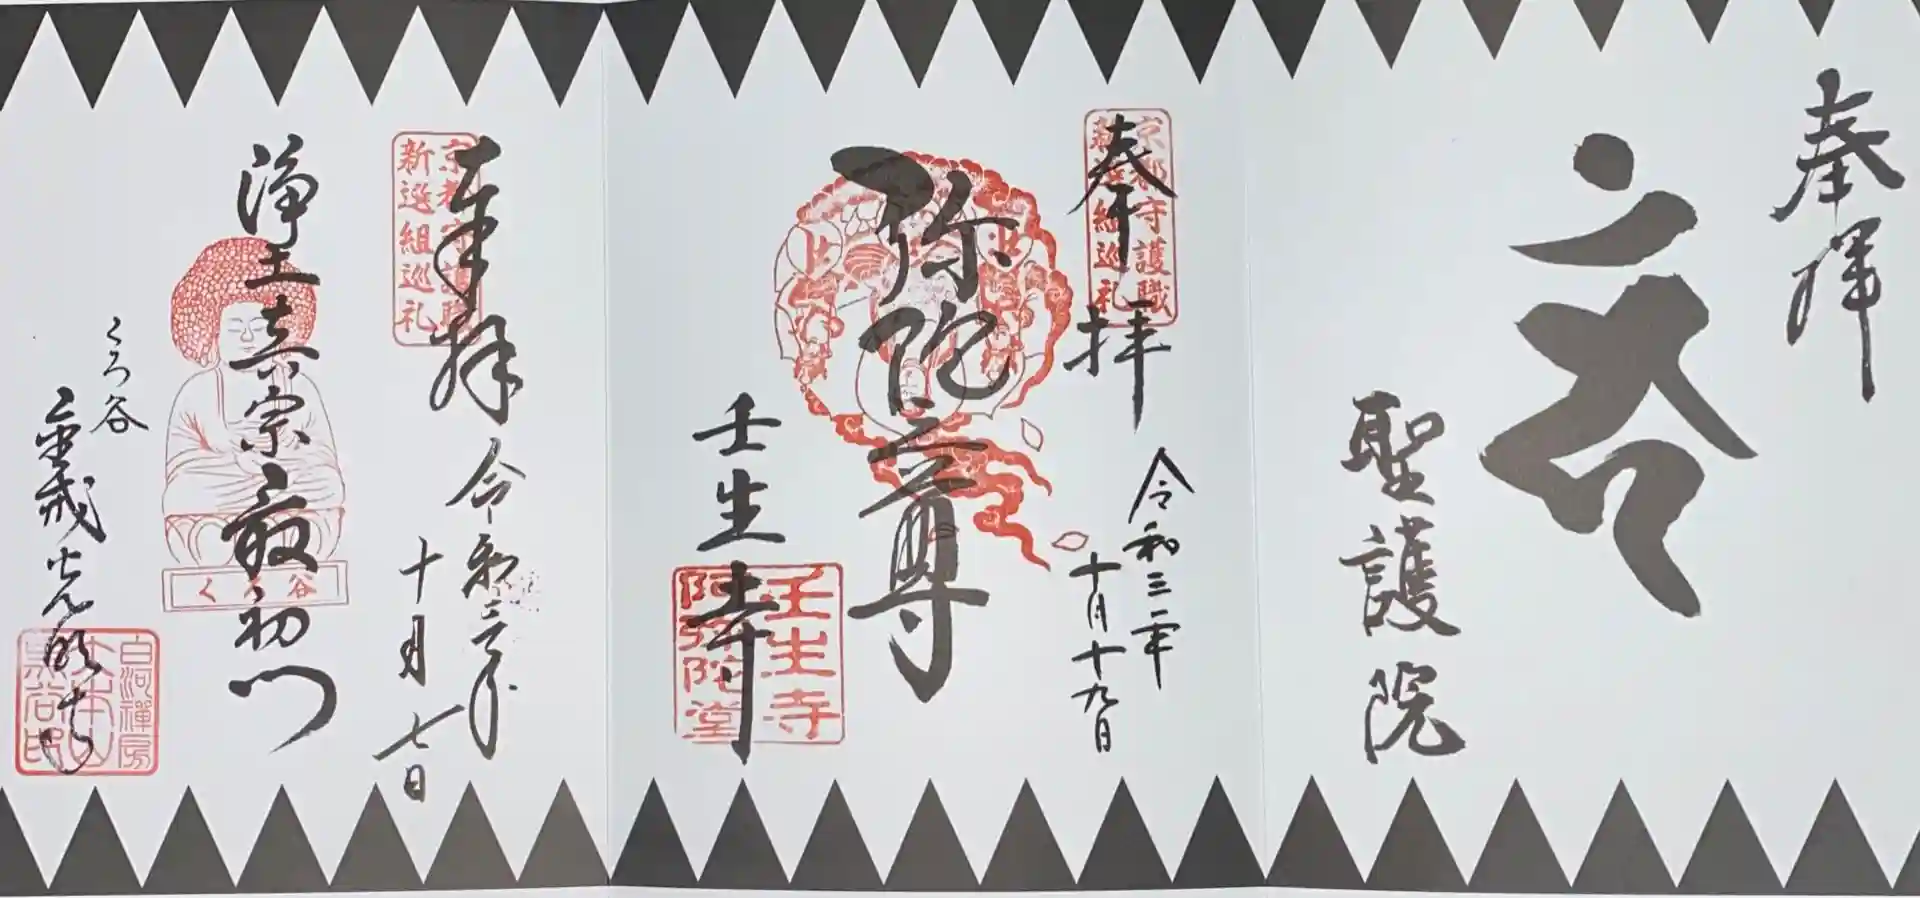 奉拝
聖護院
奉拝
京都守護職
新選組巡礼
令和三年
十月十九日
弥陀尊
壬生寺
壬生寺
阿弥陀堂
奉拝
京都守護職
新選組巡礼
令和三年
十月七日
浄土真宗最初門
くろ谷
くろ谷
金戒光明寺
白河禅房
大本山
黒谷印